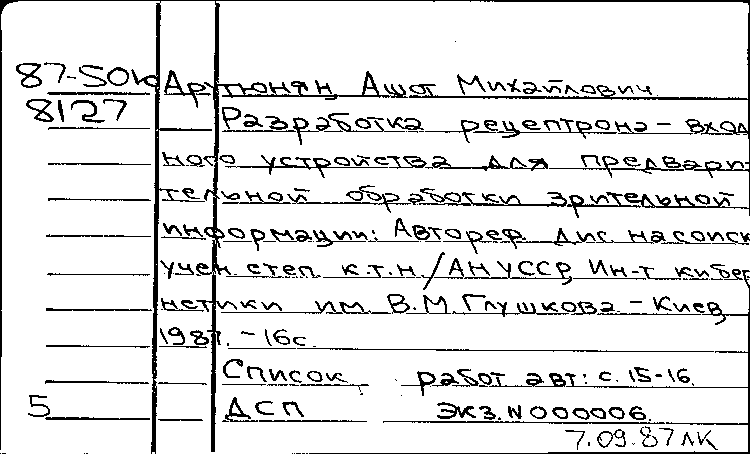 87-50к Арутюнян, Ашот Михайлович
8127 Разработка рецептрона – вход
ного устройства для предвари
тельной обработки зрительной
информации: Автореф. дис. на соиск.
учен. степ. к.т.н./АН УССР, Ин-т кибер
нетики им. В.М. Глушкова – Киев,
1987. – 16с.
Список работ авт: с. 15-16.
5 ДСП экз. N 000006.
7.09.87 ЛК